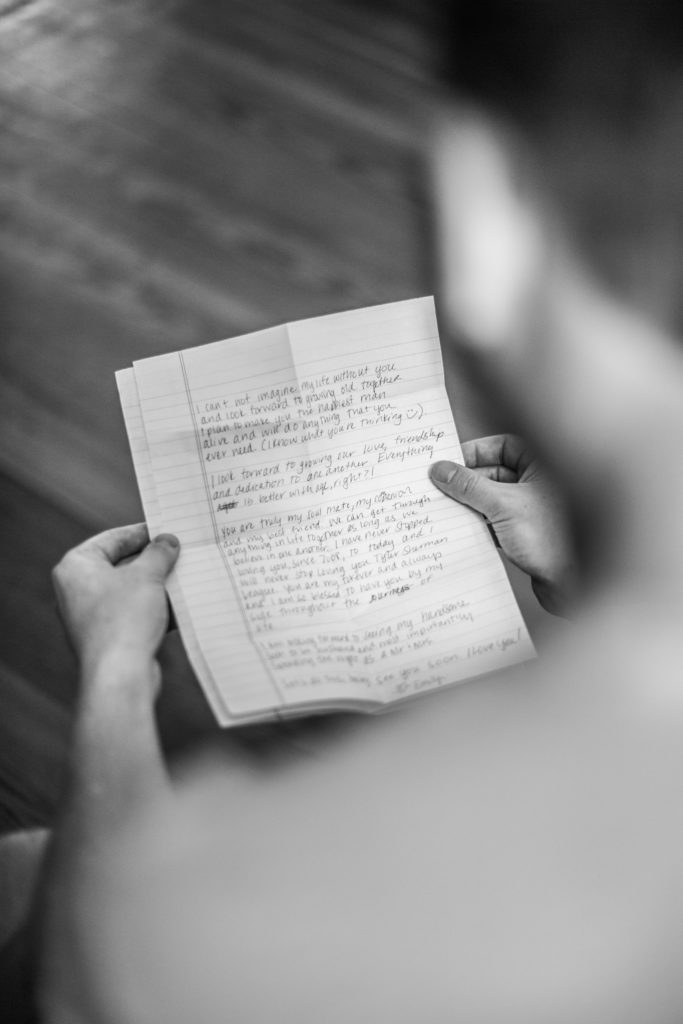 I can't not imagine my life without you
and look forward to growing old together
I plan to make you the happiest man
alive and will do anything that you
ever need. (I know what you're thinking ☺).
I look forward to growing our love, friendship
and dedication to one another. Everything
is better with age, right?!
You are truly my soul mate, my
and my best friend. We can get through
anything in life together as long as we
believe in one another. I have never stopped
loving you, since 2008, to today and I
will never stop loving you Tyler Sherman
League. You are my forever and always
and I am so blessed to have you by my
side throughout the journeys of
life.
I am looking forward to seeing my handsome
soon to be husband and most importantly
spending the night as a Mr + Mrs.
see you soon I Love You!
Emily